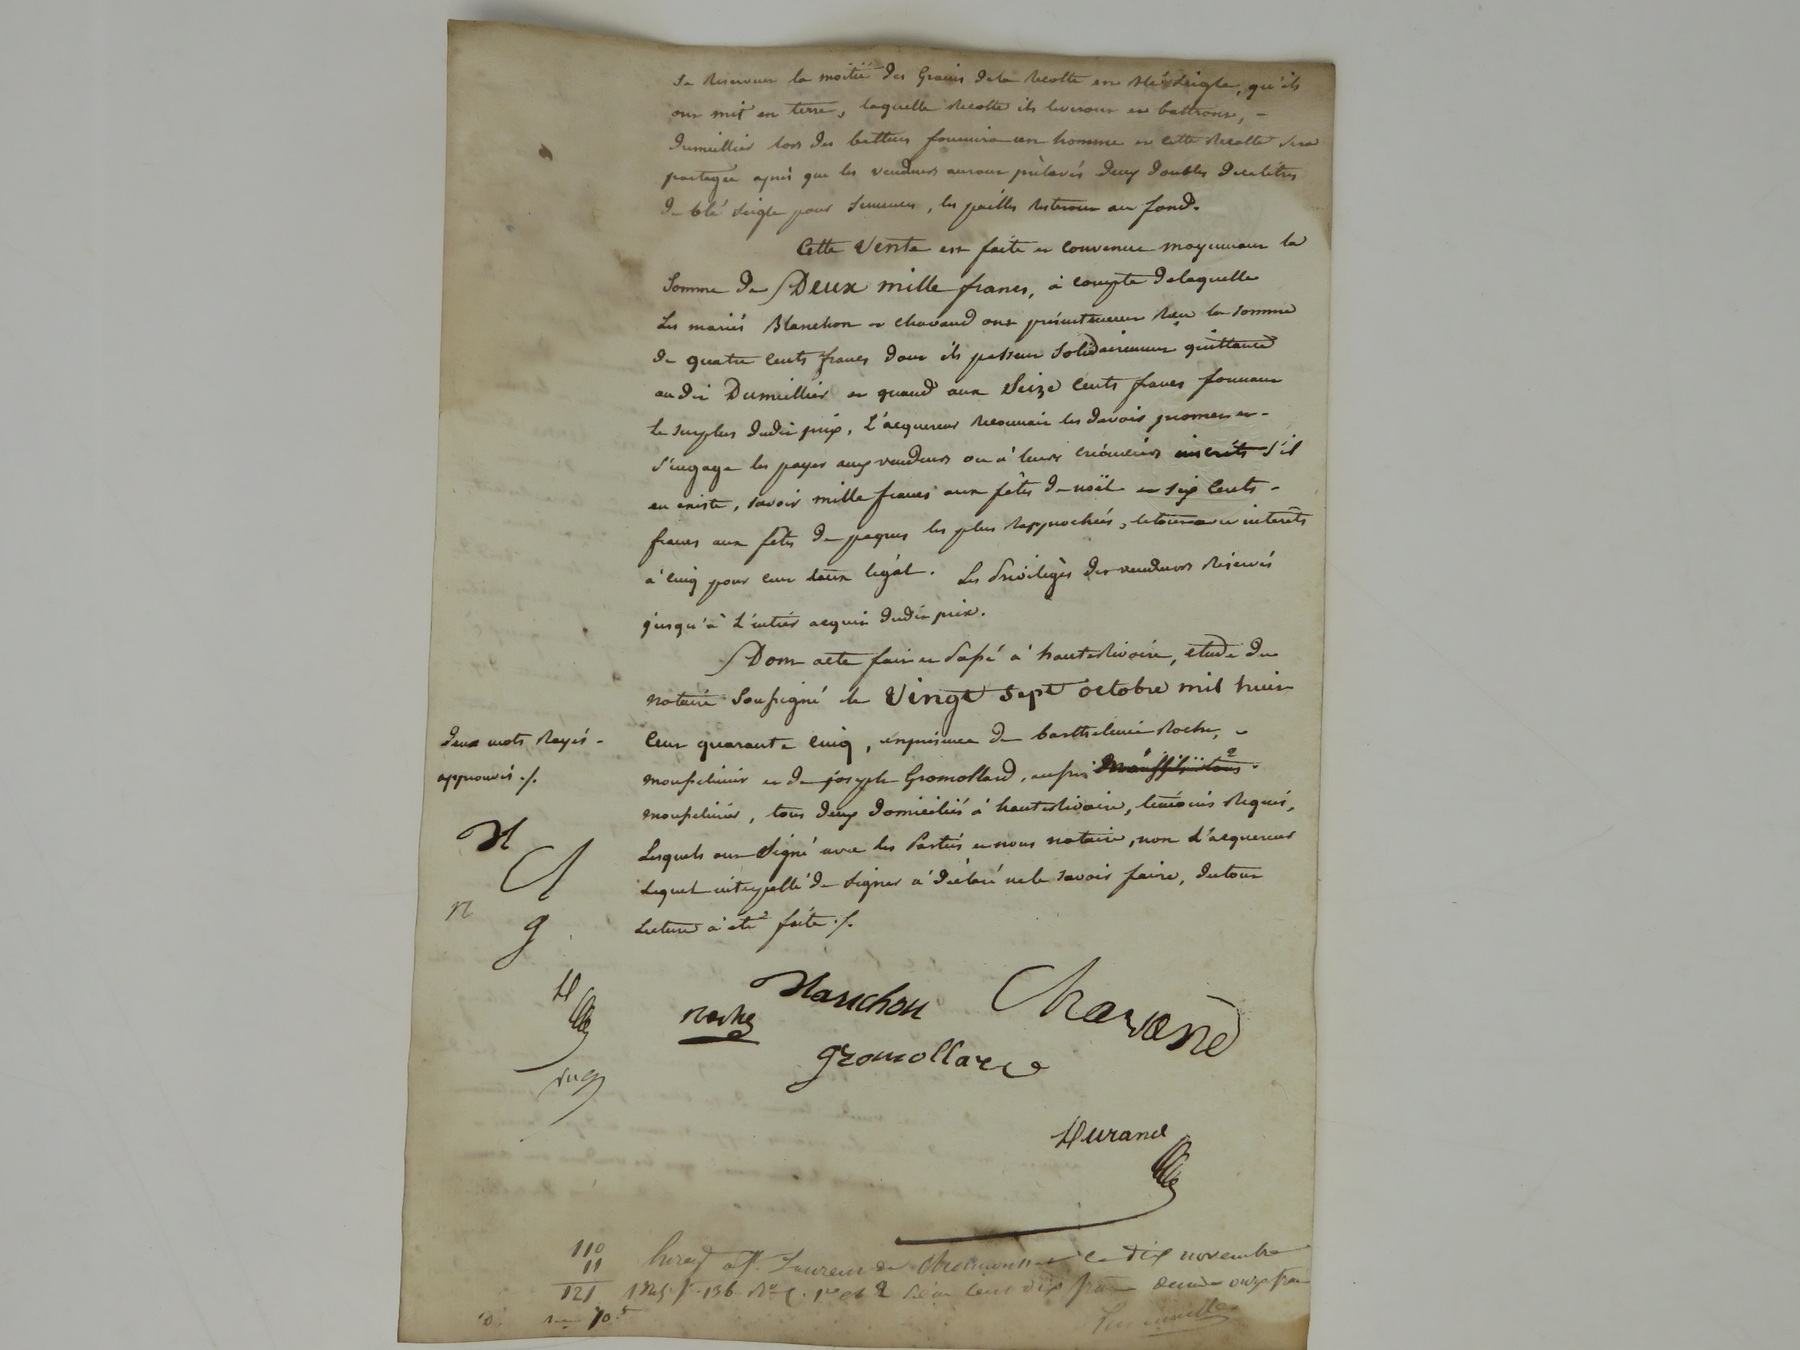 se reserver la moitié des Grains de la recolte en blé seigle, qu'ils
ont mis en terre, laquelle recolte ils leveront et battront, -
Dumillier lors des battues fournira un homme et cette recolte sera
partagée après que les vendeurs auront prélevés deux doubles decalitres
de blé seigle pour semence, les pailles resteront au fond.
Cette Vente est faite et convenue moyennant la
somme de Deux mille francs, à compte de laquelle
les mariés Blanchon et Chavand ont présentement reçu la somme
de quatre cents francs dont ils passent solidairement quittance
au dit Dumillier et quand aux Seize cents francs formant
le surplus dudit prix, L'acquereur reconnait les devoir promet et -
s'engage les payer aux vendeurs ou à leurs créanciers inscrits s'il
en existe, savoir mille francs aux fêtes de noël et six cents -
francs aux fêtes de paques les plus rapprochées, le tout avec interêts
à cinq pour cent taux légal. Les Privilèges des vendeurs réservés
jusqu'à L'entier acquit dudit prix.
Dont acte fait et Passé à hauterivoire, etude du
notaire soussigné le Vingt sept octobre mil huit
cent quarante cinq, en présence de barthelemie Roche, -
deux mots rayés -
approuvés ./.
et de joseph Gromollard, aussi
, tous deux domiciliés à hauterivoire, témoins requis,
Lesquels ont signé avec les Parties et nous notaire, non L'acquereur
Lequel interpellé de signer à déclaré ne le savoir faire, du tout
Lecture à été faite ./.
Blanchon Chavand
Roche
gromollard
Durand
110
11
121
à St. Laurent de Chamousset le dix novembre
1845 f. 136 Ro C. 1re et 2 Reçu cent dix francs decime onze francs